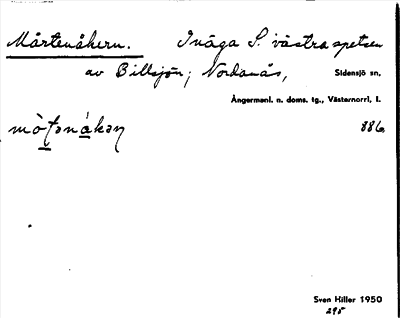 Mårtenåkern. Inäga S. västra spetsen
av Billsjön; Nordanås, Sidensjö sn,
Ångermanl. n. doms. tg., Västernorrl, l.
886
Sven Hiller 1950
295